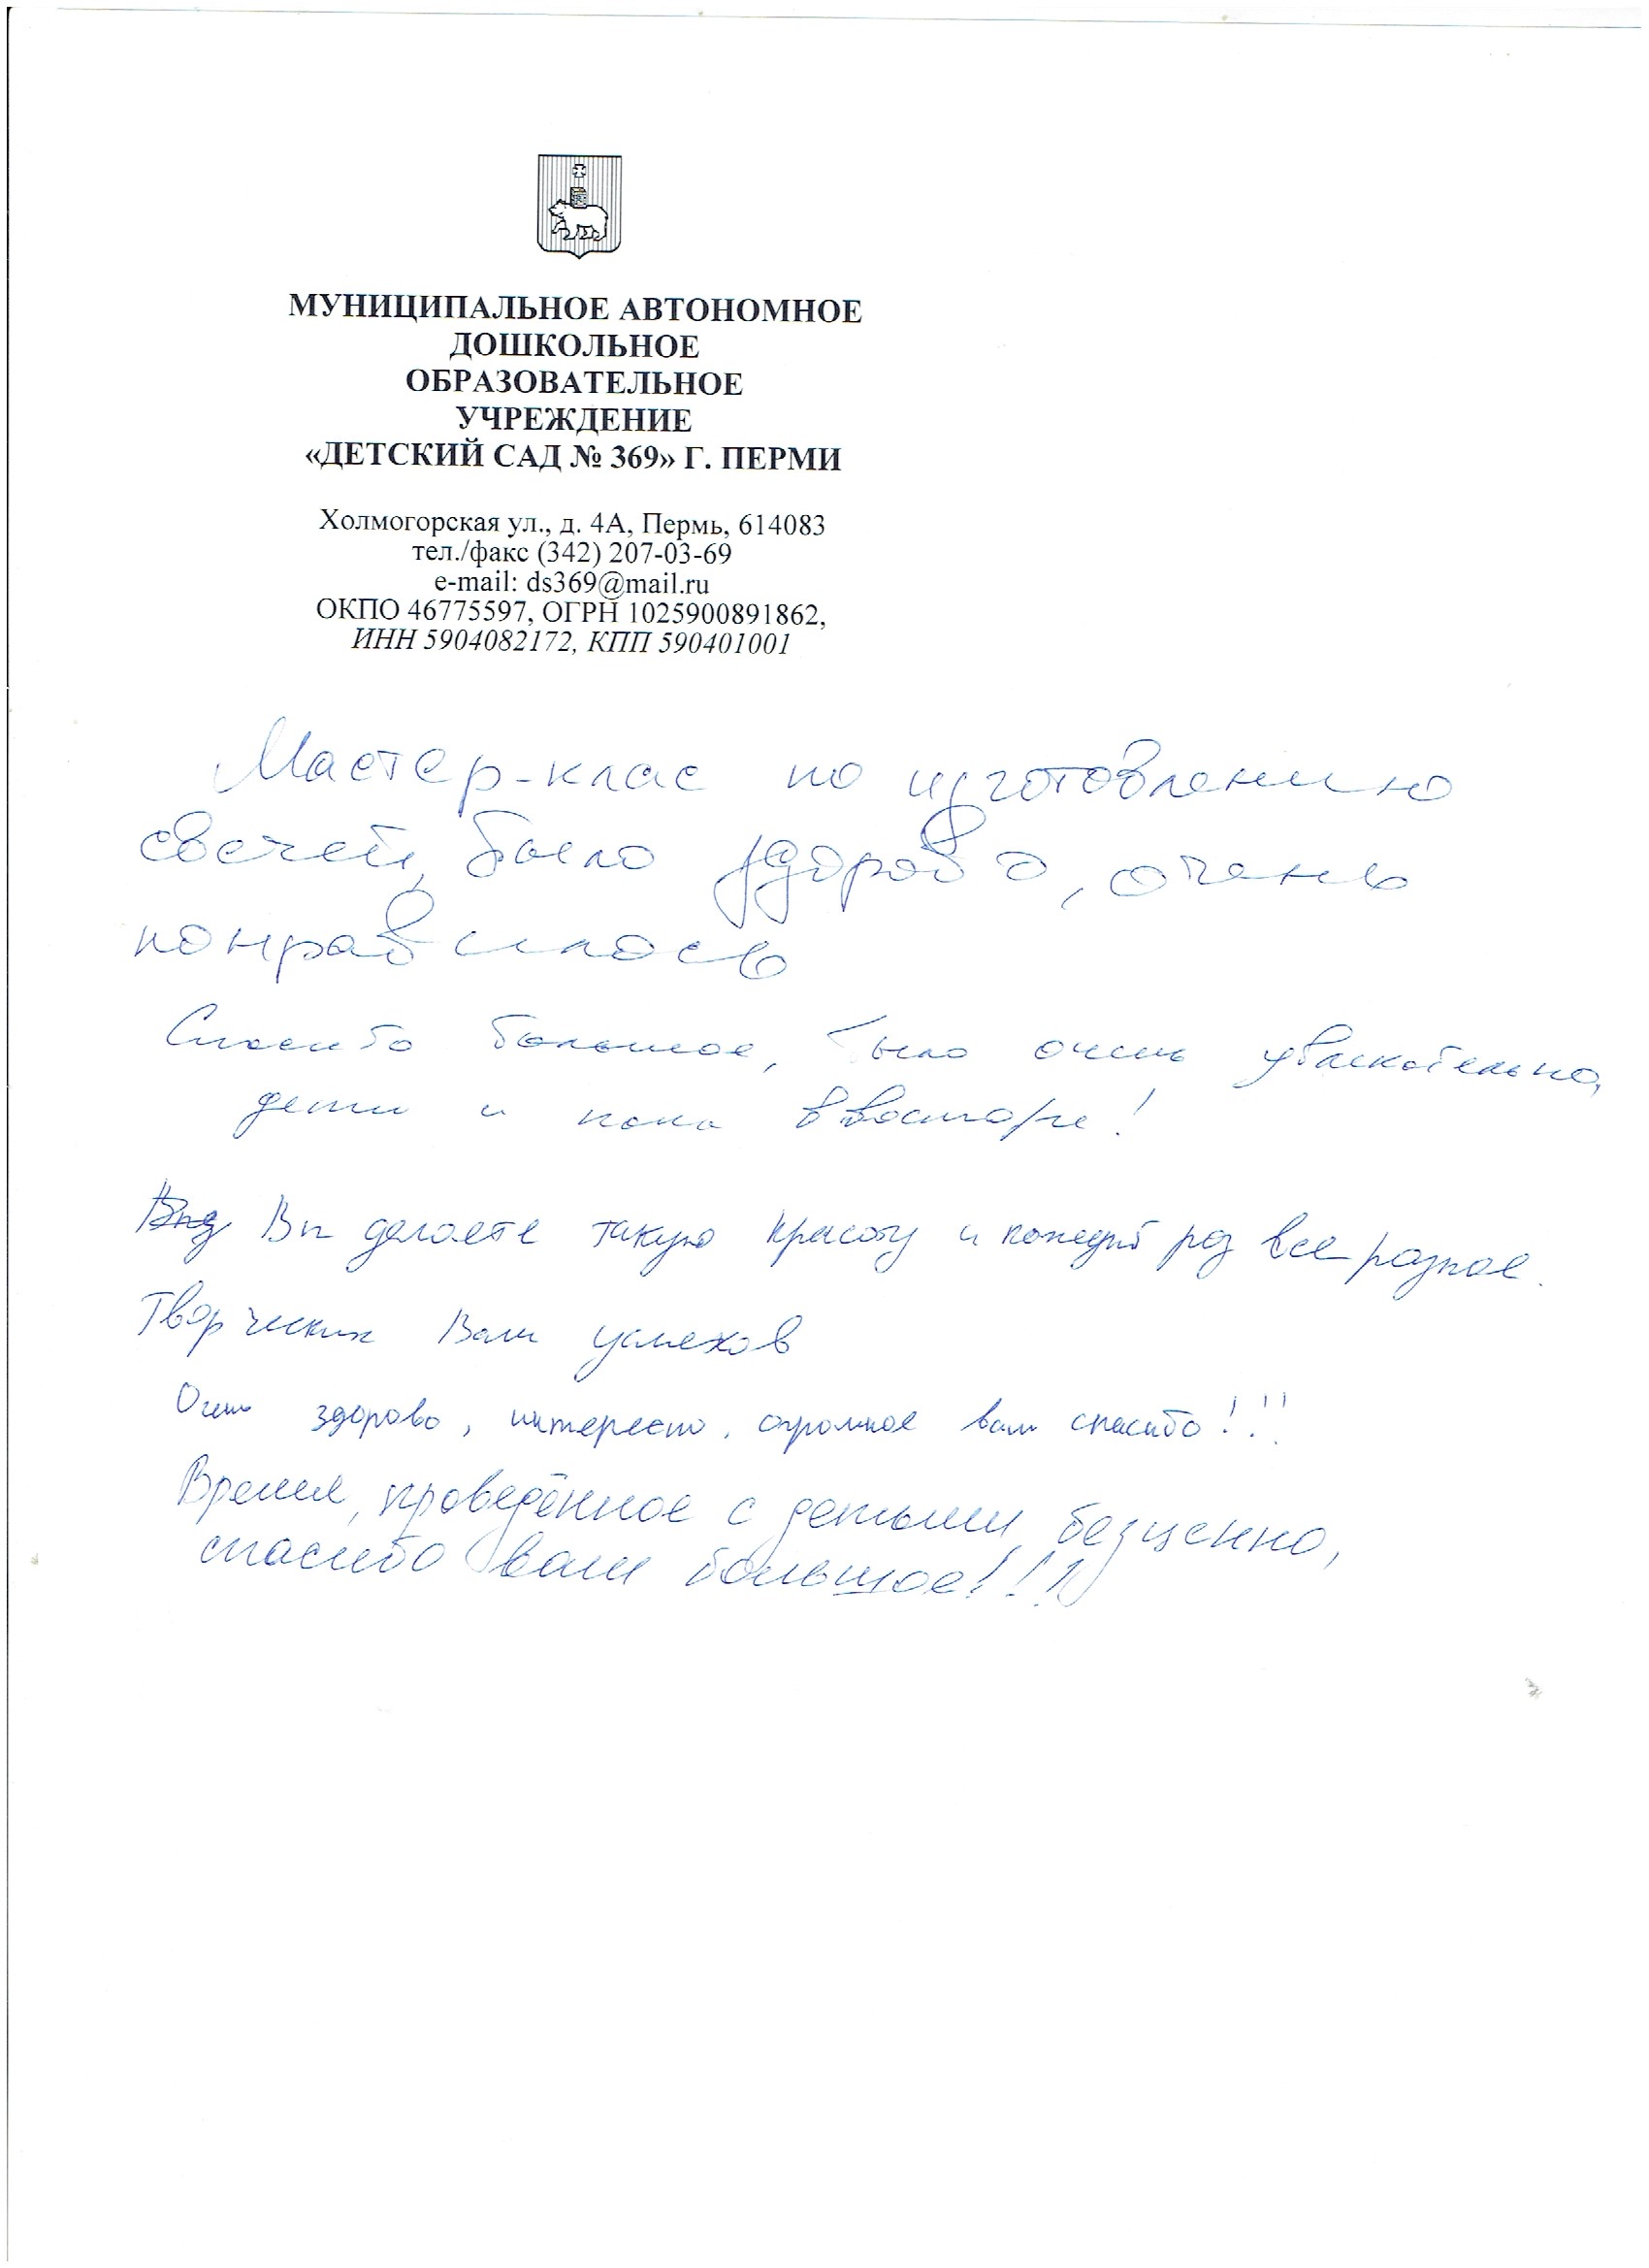 МУНИЦИПАЛЬНОЕ АВТОНОМНОЕ
ДОШКОЛЬНОЕ
ОБРАЗОВАТЕЛЬНОЕ
УЧРЕЖДЕНИЕ
«ДЕТСКИЙ САД № 369» Г. ПЕРМИ
Холмогорская ул., д. 4А, Пермь, 614083
тел./факс (342) 207-03-69
e-mail: ds369@mail.ru
ОКПО 46775597, ОГРН 1025900891862,
ИНН 5904082172, КПП 590401001
Мастер-клас по изготовлению
свечей, было здорово, очень
понравилось
Спасибо большое, было очень увлекательно,
дети и в восторге!
Вы делаете такую красоту и каждый раз все разное.
Творческих Вам успехов
Очень здорово, интересно, огромное вам спасибо!!!
Время, проведённое с детьми, безценно,
спасибо вам большое!!!